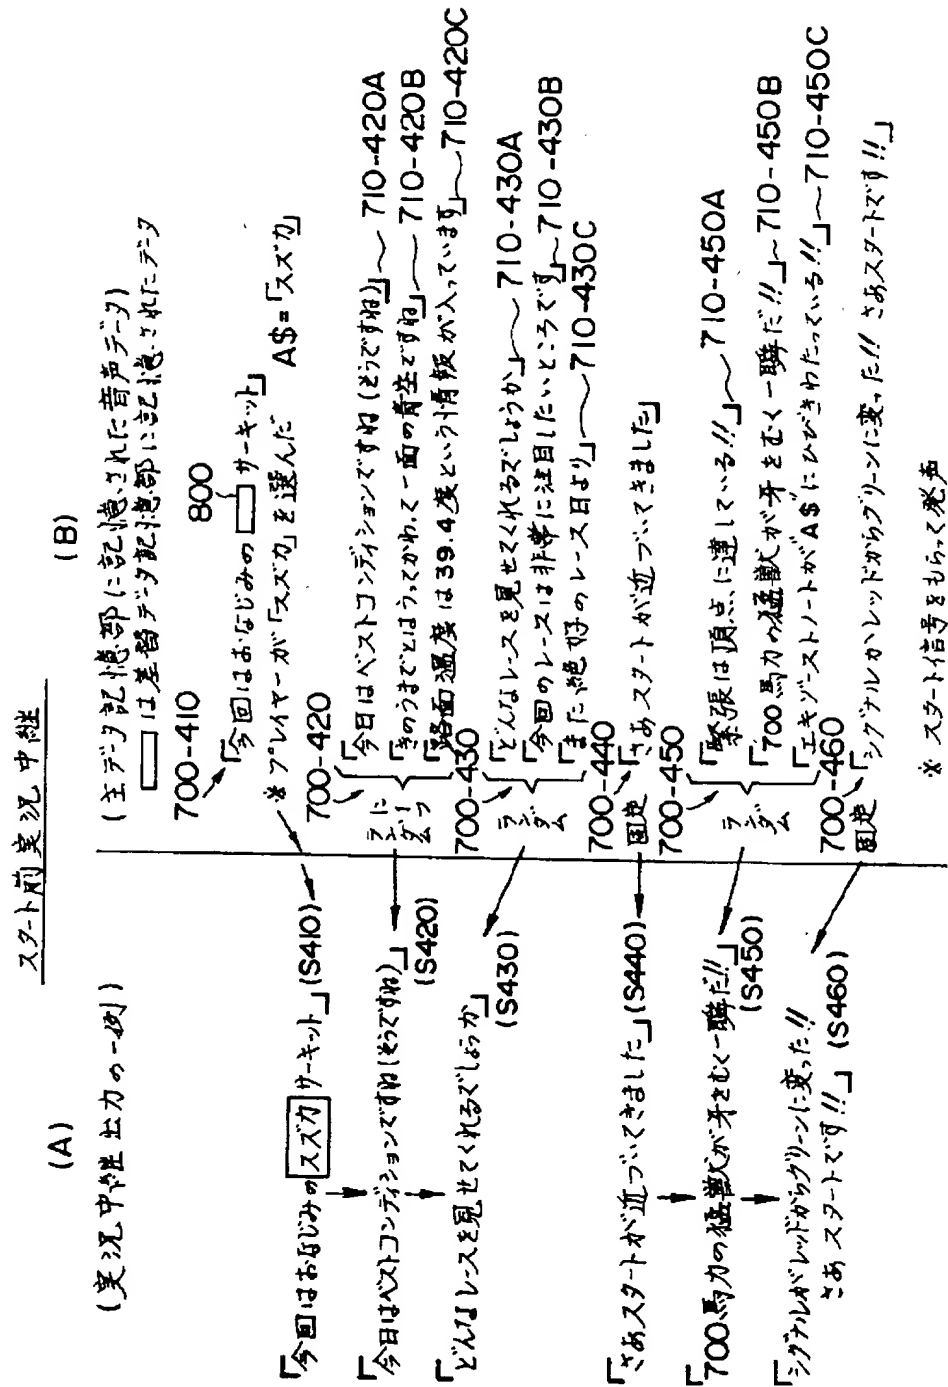 スタート前実況中継
(A)
(実況中継出力の一例)
「今回はおなじみのスズカサーキット」(S410)
「今日はベストコンディションですね(そうですね)」
(S420)
「どんなレースを見せてくれるでしょうか」
(S430)
「さあスタートが近づいてきました」(S440)
「700馬力の猛獣が牙をむく一瞬だ!!」
(S450)
「シグナルがレッドからグリーンに変った!!
さあスタートです!!」(S460)
(B)
(主データ記憶部に記憶された音声データ)
は差替データ記憶部に記憶されたデータ
700-410
800
「今回はおなじみの サーキット」
※プレイヤーが「スズカ」を選んだ A$=「スズカ」
700-420
ランダムに1つ
「今日はベストコンディションですね(そうですね)」~710-420A
「きのうまでとはうってかわって一面の青空ですね」~710-420B
「路面温度は39.4度という情報が入っています」~710-420C
700-430
ランダム
「どんなレースを見せてくれるでしょうか」~710-430A
「今回のレースは非常に注目したいところです」~710-430B
「また絶好のレース日より」~710-430C
700-440
固定
「さあスタートが近づいてきました」
700-450
ランダム
「緊張は頂点に達している!!」~710-450A
「700馬力の猛獣が牙をむく一瞬だ!!」~710-450B
「エキゾーストノートがA$にひびきわたっている!!」~710-450C
700-460
固定
「シグナルがレッドからグリーンに変った!! さあスタートです!!」
※ スタート信号をもらって発声